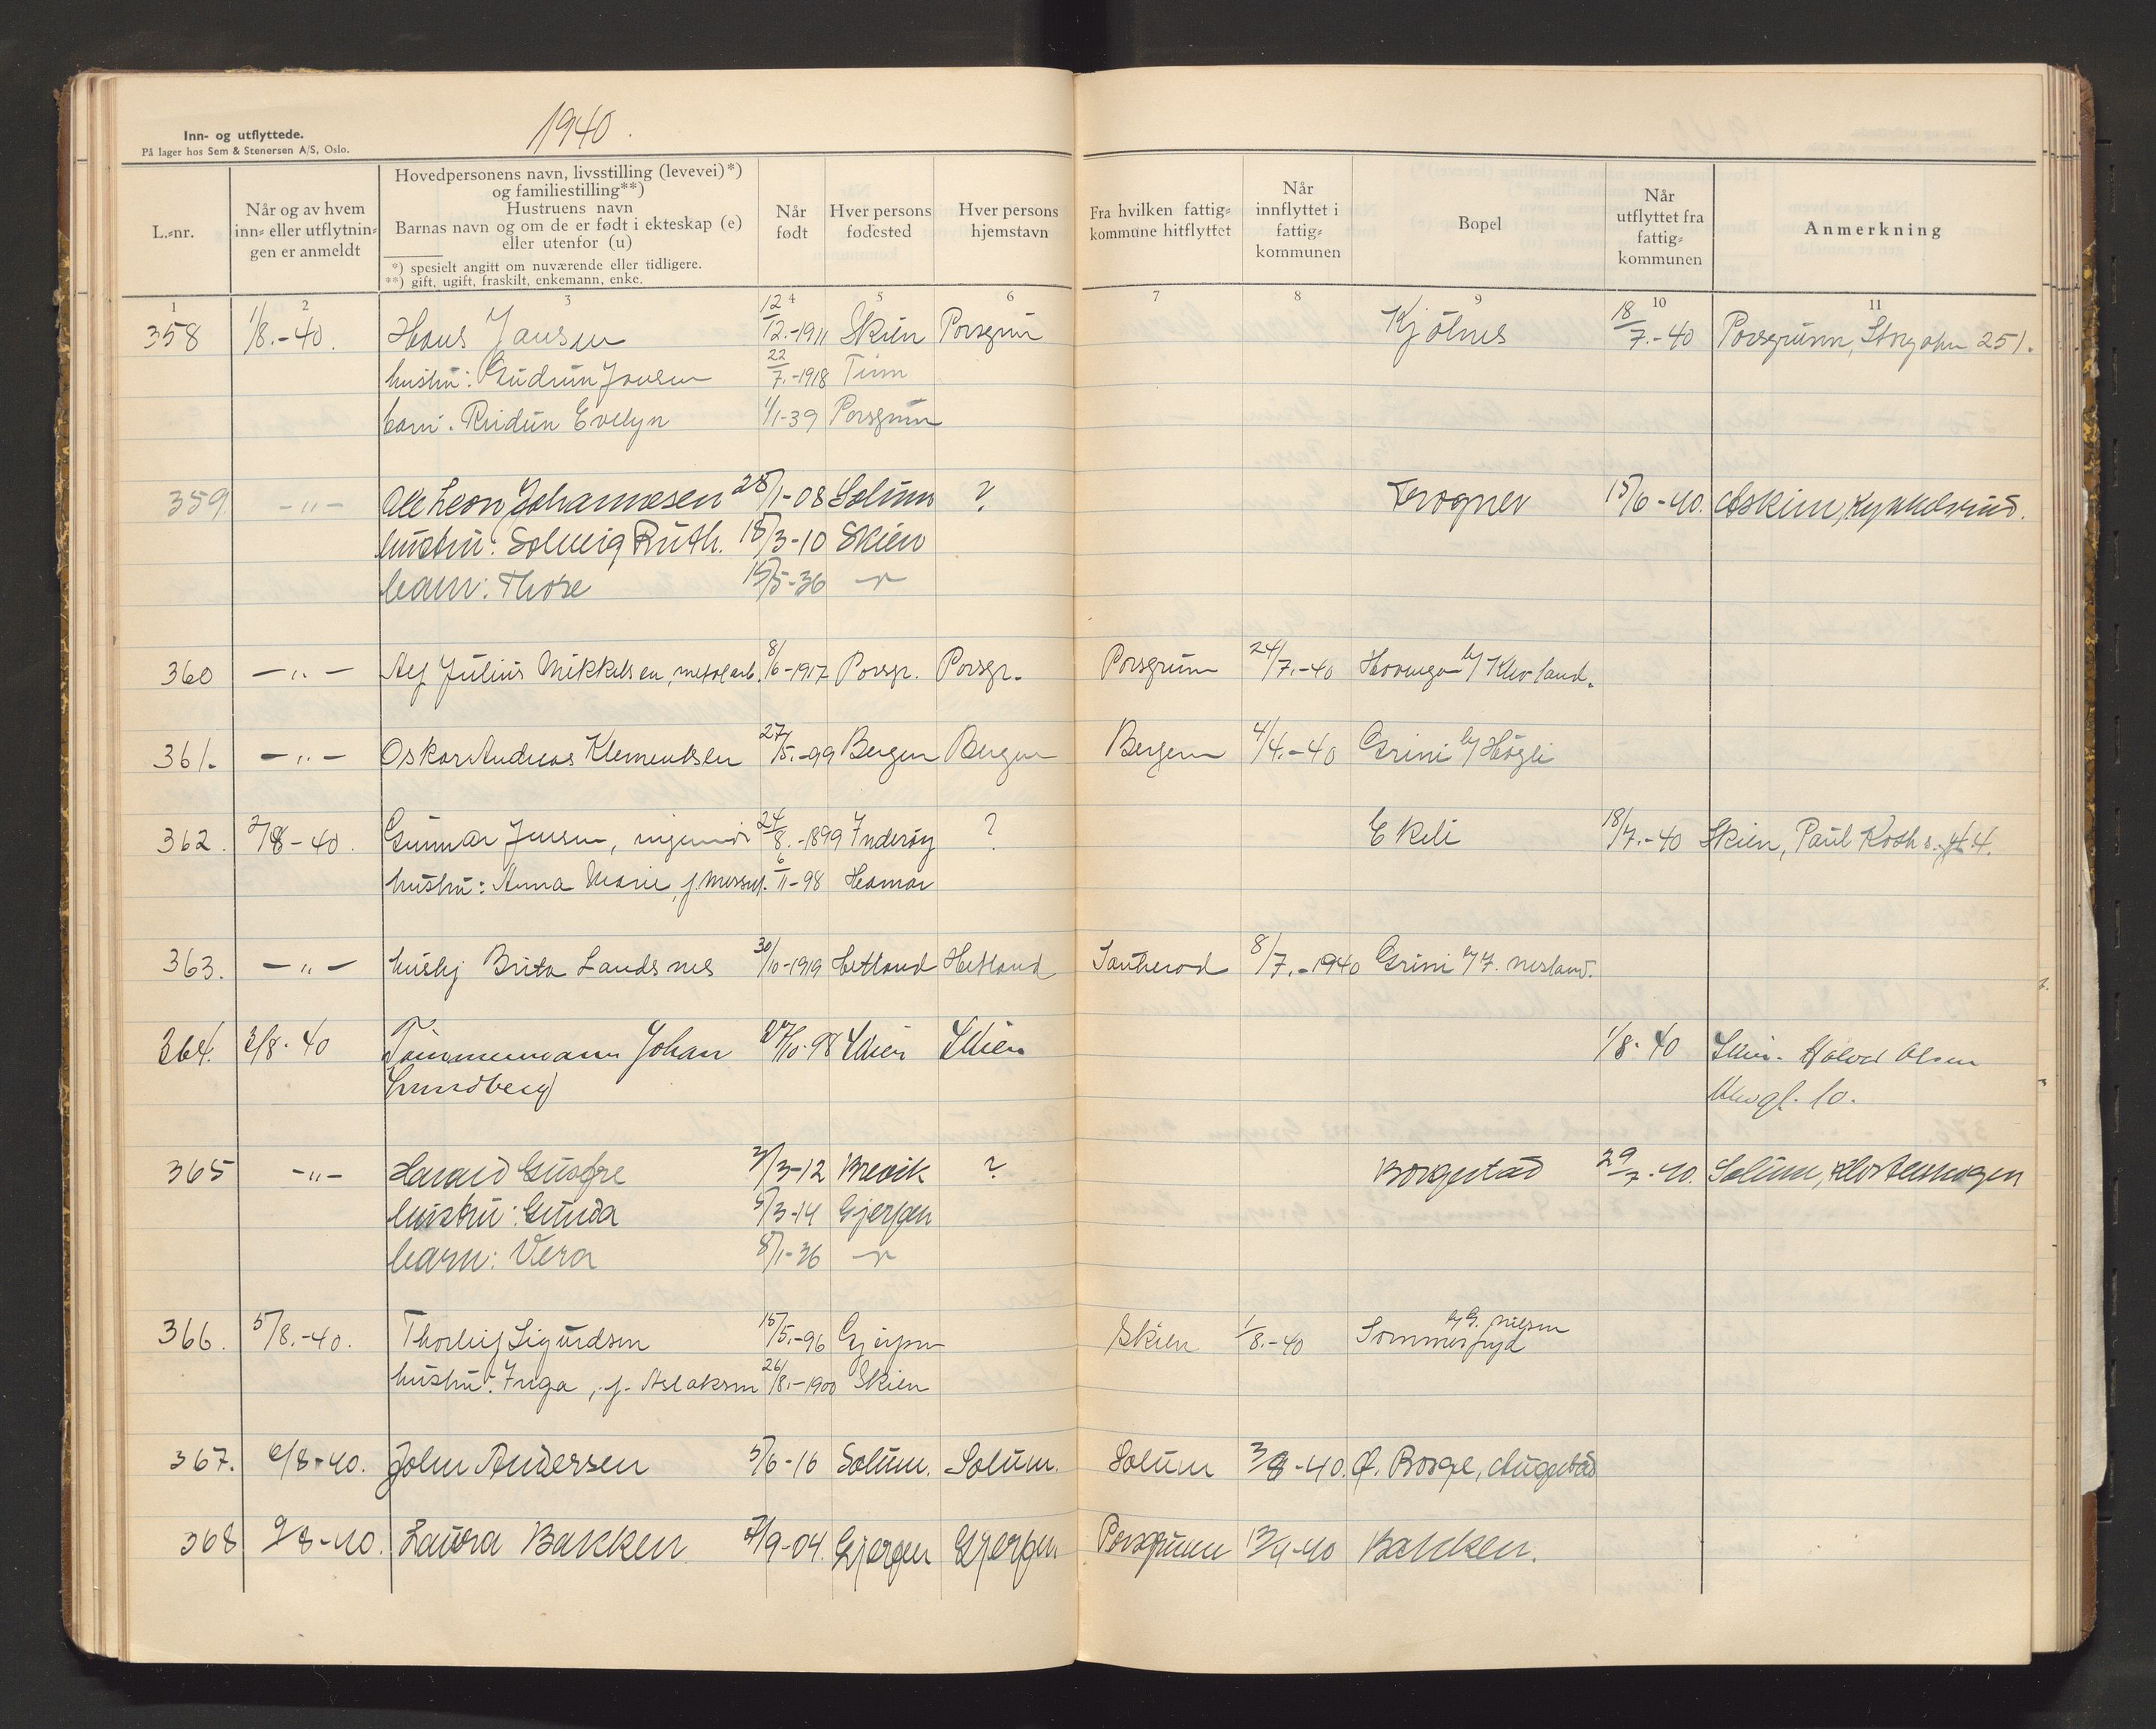 1940.
Inn- og utflyttede.
På lager hos Sem & Stenersen A/S, Oslo.
L.=nr.
Når og av hvem
inn= eller utflytnin=
gen er anmeldt
Hovedpersonens navn, livsstilling (levevei)*)
og familiestilling**)
Hustruens navn
Barnas navn og om de er født i ekteskap (e)
eller utenfor (u)
*) spesielt angitt om nuværende eller tidligere.
**) gift, ugift, fraskilt, enkemann, enke.
Når
født
Hver persons
fødested
Hver persons
hjemstavn
Fra hvilken fattig=
kommune hitflyttet
Når
innflyttet i
fattig=
kommunen
Bopel
Når
utflyttet fra
fattig=
kommunen
Anmerkning
1 2 3 4 5 6 7 8 9 10 11
358 1/8.-40. Hans Jansen 12/12.-1911 Skien Porsgrun Kjølnes 18/7.-40 Porsgrunn, 251.
hustru: Gudrun Jansen 22/7.-1918 Tinn
barn: Reidun Evelyn 1/1-39 Porsgrunn
359 -"- Ole Leon Johannesen 28/1-08 Solum ? Frogner 15/6-40. Askim, Kykkelsrud.
hustru: Solveig Ruth. 18/3-10 Skien
barn: Those 15/5-36 -"-
360 -"- Alf Julius Mikkelsen, metalarb. 8/6-1917 Porsgr. Porsgr. Porsgrunn 24/7.-40 Hovenga b/ Klevland.
361. -"- Oskar Andreas Klementsen 27/5.-99 Bergen Bergen Bergen 4/4.-40 Grini b/ Høgli
362. 2/8-40. Gunnar Jensen, ingeniør 24/8.-1899 Inderøy ? Ekeli 18/7.-40 Skien, Paul Koths. gt 4.
hustru: Anna Marie, f. 6/11-98 Hamar
363. -"- hushj Brita Landsnes 30/10-1919 Hetland Hetland Sauherad 8/7.-1940 Grini b/ J. Nesland.
364. 2/8-40 Tømmermann Johan 27/10-98 Skien Skien 1/8-40 Skien. Halvd Olsen
Lundberg 10.
365 -"- Harald Gusfre 2/3-12 Brevik ? Borgestad 29/7-40. Solum, Klosterskogen
hustru: Gunda 5/3-14 Gjerpen
barn: Vera 8/1-36 -"-
366. 5/8.-40. Thorleif Sigurdsen 15/5.-96 Gjerpen Skien 1/8.-40 Sommerfryd
b/ G. Nilsen
hustru: Inga, f. Aslaksen 26/8.-1900 Skien
367. 6/8-40. John Andersen 5/6-16 Solum. Solum. Solum 3/8-40. Ø. Borge, Augestad
368 9/8-40. Laura Bakken 7/9-04. Gjerpen Gjerpen Porsgrunn 13/4-40 Bakken.